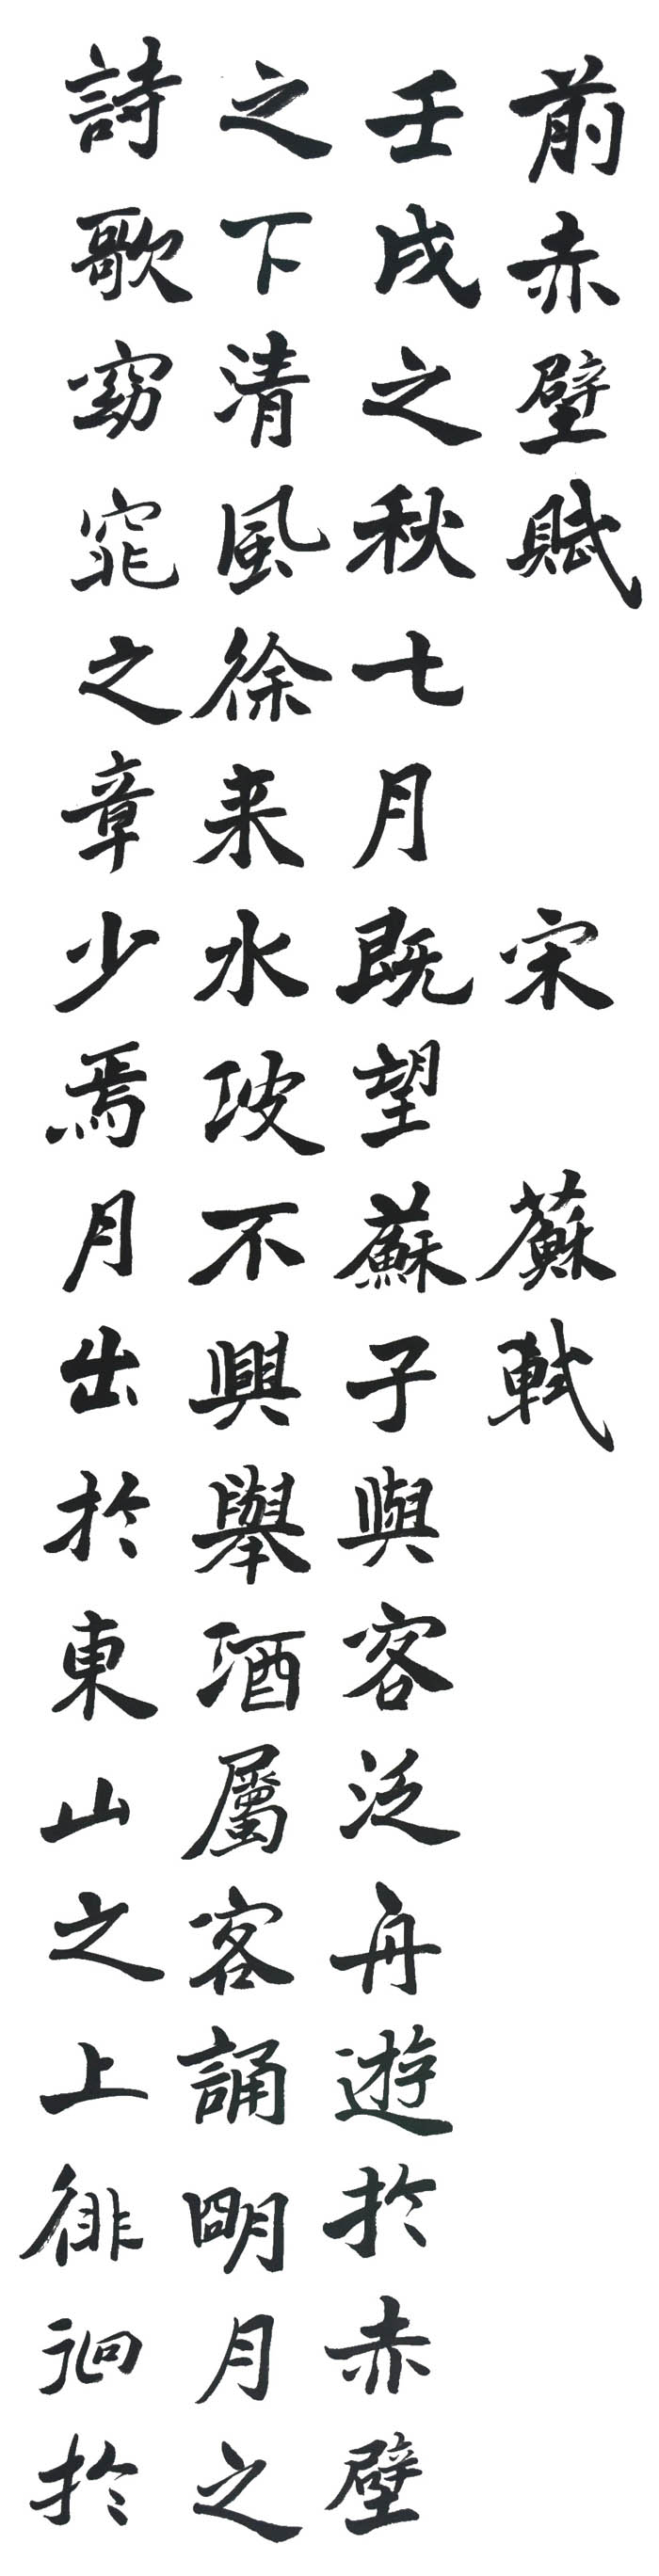 前赤壁賦 宋 蘇軾
壬戌之秋七月既望蘇子與客泛舟遊於赤壁
之下清風徐来水波不興舉酒屬客誦明月之
詩歌窈窕之章少焉月出於東山之上徘徊於